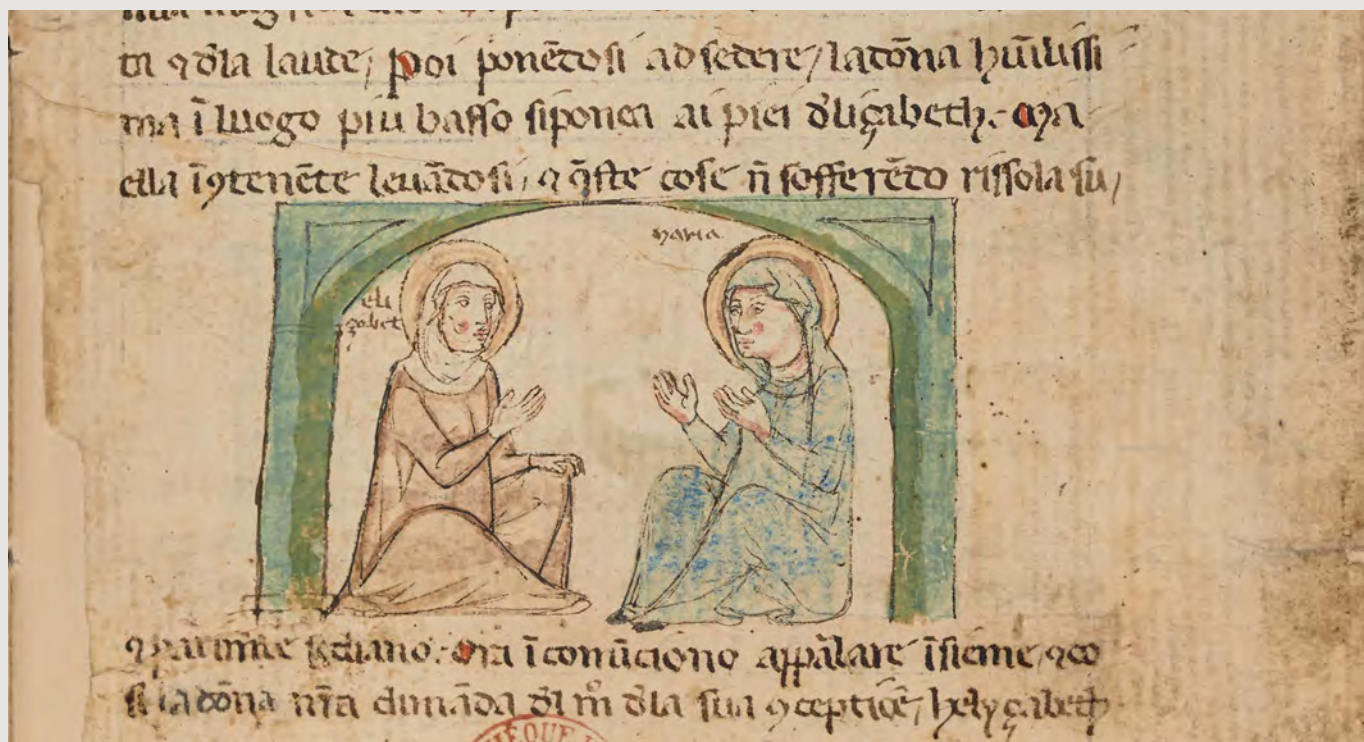 ti ⁊ d̄la laude, Poi ponēdosi ad sedere, la dōna hūilissi
ma ī luogo piu basso si ponea ai piei d̄ liçabeth. Ma
ella īꝯtenēte levādosi, ⁊ q̄ste cose n̄ sofferēdo rissola su,
maria
eli
çabet
⁊ parimēte sediano. Ora īcomīciono a pārlare īsieme, ⁊ co
si la dōna nr̄a dimāda d̄l m̊ d̄la sua ꝯceptiōe, helyçabeth